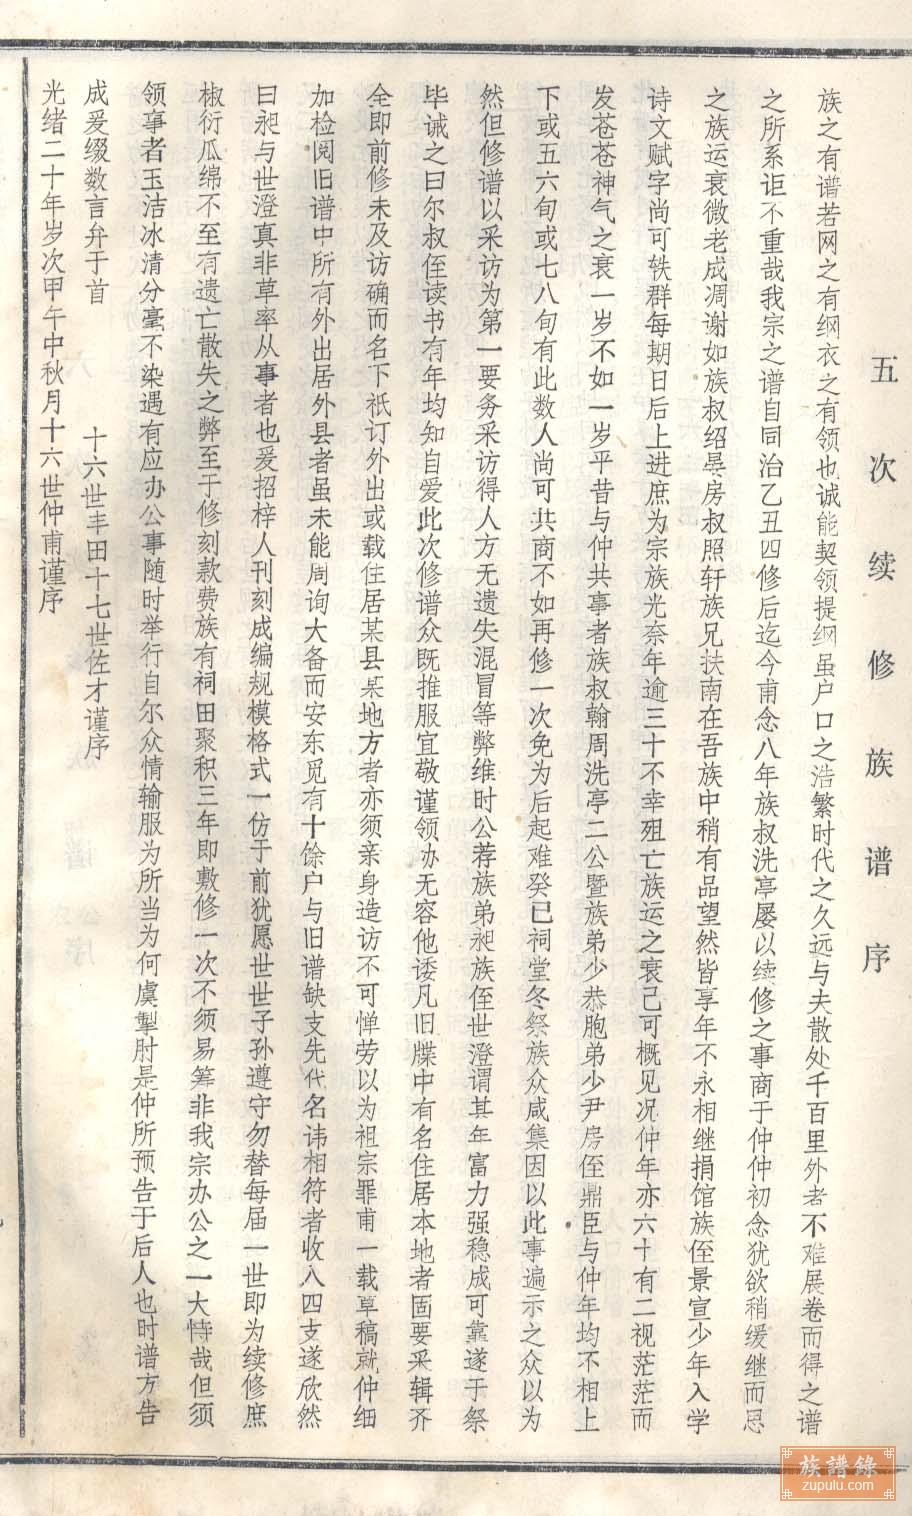 五次续修族谱序
族之有谱若网之有纲衣之有领也诚能契领提纲虽户口之浩繁时代之久远与夫散处千百里外者不难展卷而得之谱
之所系讵不重哉我宗之谱自同治乙丑四修后迄今甫念八年族叔洗亭屡以续修之事商于仲仲初念犹欲稍缓继而思
之族运衰微老成凋谢如族叔绍晏房叔照轩族兄扶南在吾族中稍有品望然皆享年不永相继捐馆族侄景宣少年入学
诗文赋字尚可轶群每期日后上进庶为宗族光奈年逾三十不幸殂亡族运之衰己可概见况仲年亦六十有二视茫茫而
发苍苍神气之衰一岁不如一岁平昔与仲共事者族叔翰周洗亭二公暨族弟少恭胞弟少尹房侄鼎臣与仲年均不相上
下或五六旬或七八旬有此数人尚可共商不如再修一次免为后起难癸巳祠堂冬祭族众咸集因以此事遍示之众以为
然但修谱以采访为第一要务采访得人方无遗失混冒等弊维时公荐族弟昶族侄世澄谓其年富力强稳成可靠遂于祭
毕诫之曰尔叔侄读书有年均知自爱此次修谱众既推服宜敬谨领办无容他诿凡旧牒中有名住居本地者固要采辑齐
全即前修未及访确而名下祇订外出或载住居某县某地方者亦须亲身造访不可惮劳以为祖宗罪甫一载草稿就仲细
加检阅旧谱中所有外出居外县者虽未能周询大备而安东觅有十馀户与旧谱缺支先代名讳相符者收入四支遂欣然
曰昶与世澄真非草率从事者也爰招梓人刊刻成编规模格式一仿于前犹愿世世子孙遵守勿替每届一世即为续修庶
椒衍瓜绵不至有遗亡散失之弊至于修刻款费族有祠田聚积三年即敷修一次不须易筹非我宗办公之一大恃哉但须
领事者玉洁冰清分毫不染遇有应办公事随时举行自尔众情输服为所当为何虞掣肘是仲所预告于后人也时谱方告
成爰缀数言弁于首 十六世丰田十七世佐才谨序
光绪二十年岁次甲午中秋月十六世仲甫谨序
族譜錄
zupulu.com